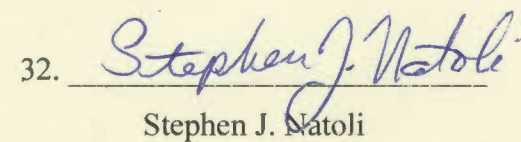 32. Stephen J. Natoli
Stephen J. Natoli